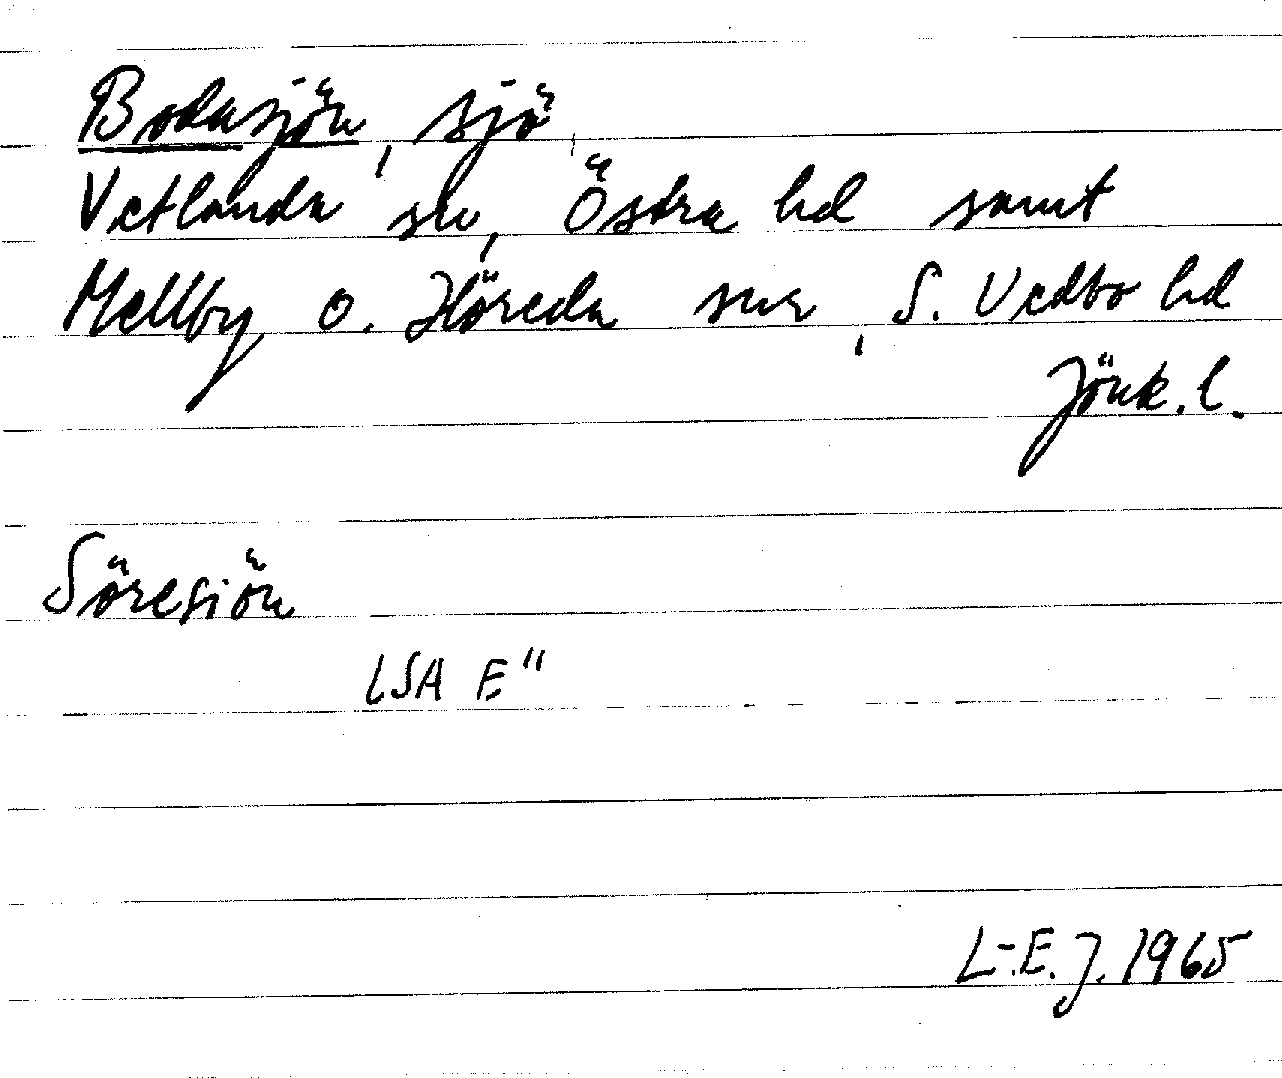 Bodasjön, sjö,
Vetlanda sn, Östra hd samt
Mellby o. Höreda snr, S. Vedbo hd
Jönk. l.
Söresiön
LSA E"
L-E. J. 1965